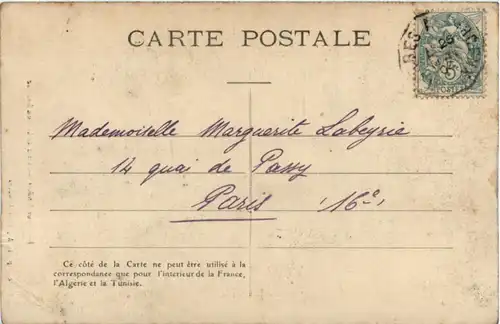 CARTE POSTALE
Mademoiselle Marguerite Labeyrie
14 quai de Passy
Paris 16e
Ce côté de la Carte ne peut être utilisé à la
correspondance que pour l'interieur de la France,
l'Algerie et la Tunisie.